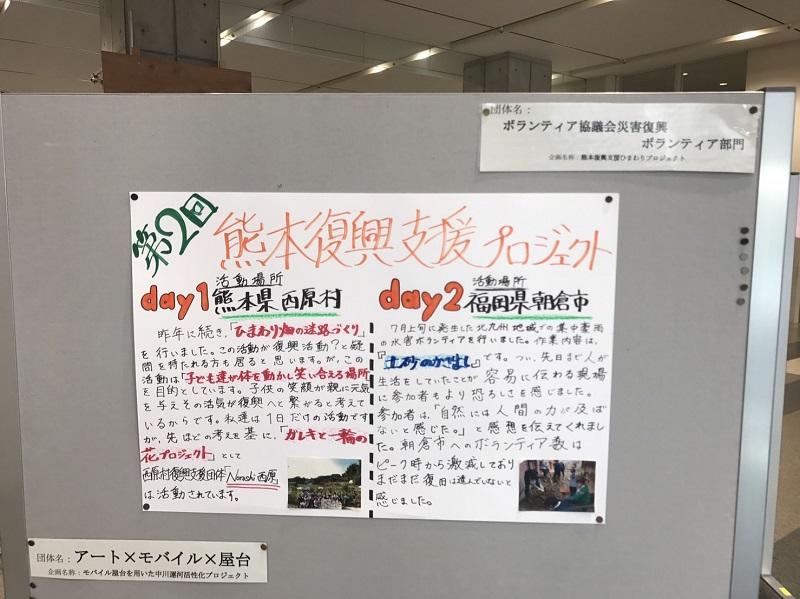 団体名：
ボランティア協議会災害復興
ボランティア部門
企画名称：熊本復興支援ひまわりプロジェクト
第2回
熊本復興支援プロジェクト
day1
活動場所
熊本県西原村
昨年に続き、「ひまわり畑の迷路づくり」
を行いました。この活動が復興活動？と疑
問を持たれる方も居ると思います。が、この
活動は「子ども達が体を動かし笑い合える場所」
を目的としています。子供の笑顔が親に元気
を与えその活気が復興へと繋がると考えて
いるからです。私達は1日だけの活動です
が、先ほどの考えを基に、「ガレキと一輪の
花プロジェクト」として
西原村復興支援団体「Noroshi西原」
は活動されています。
day2
活動場所
福岡県朝倉市
7月上旬に発生した北九州地域での集中豪雨
の水害ボランティアを行いました。作業内容は、
『土砂のかきだし』です。つい、先日まで人が
生活をしていたことが容易に伝わる現場
に参加者もより恐ろしさを感じました。
参加者は、「自然には人間の力が及ば
ないと感じた。」と感想を伝えてくれまし
た。朝倉市へのボランティア数は
ピーク時から激減しており
まだまだ復旧は進んでいないと
感じました。
団体名：アート×モバイル×屋台
企画名称：モバイル屋台を用いた中川運河活性化プロジェクト